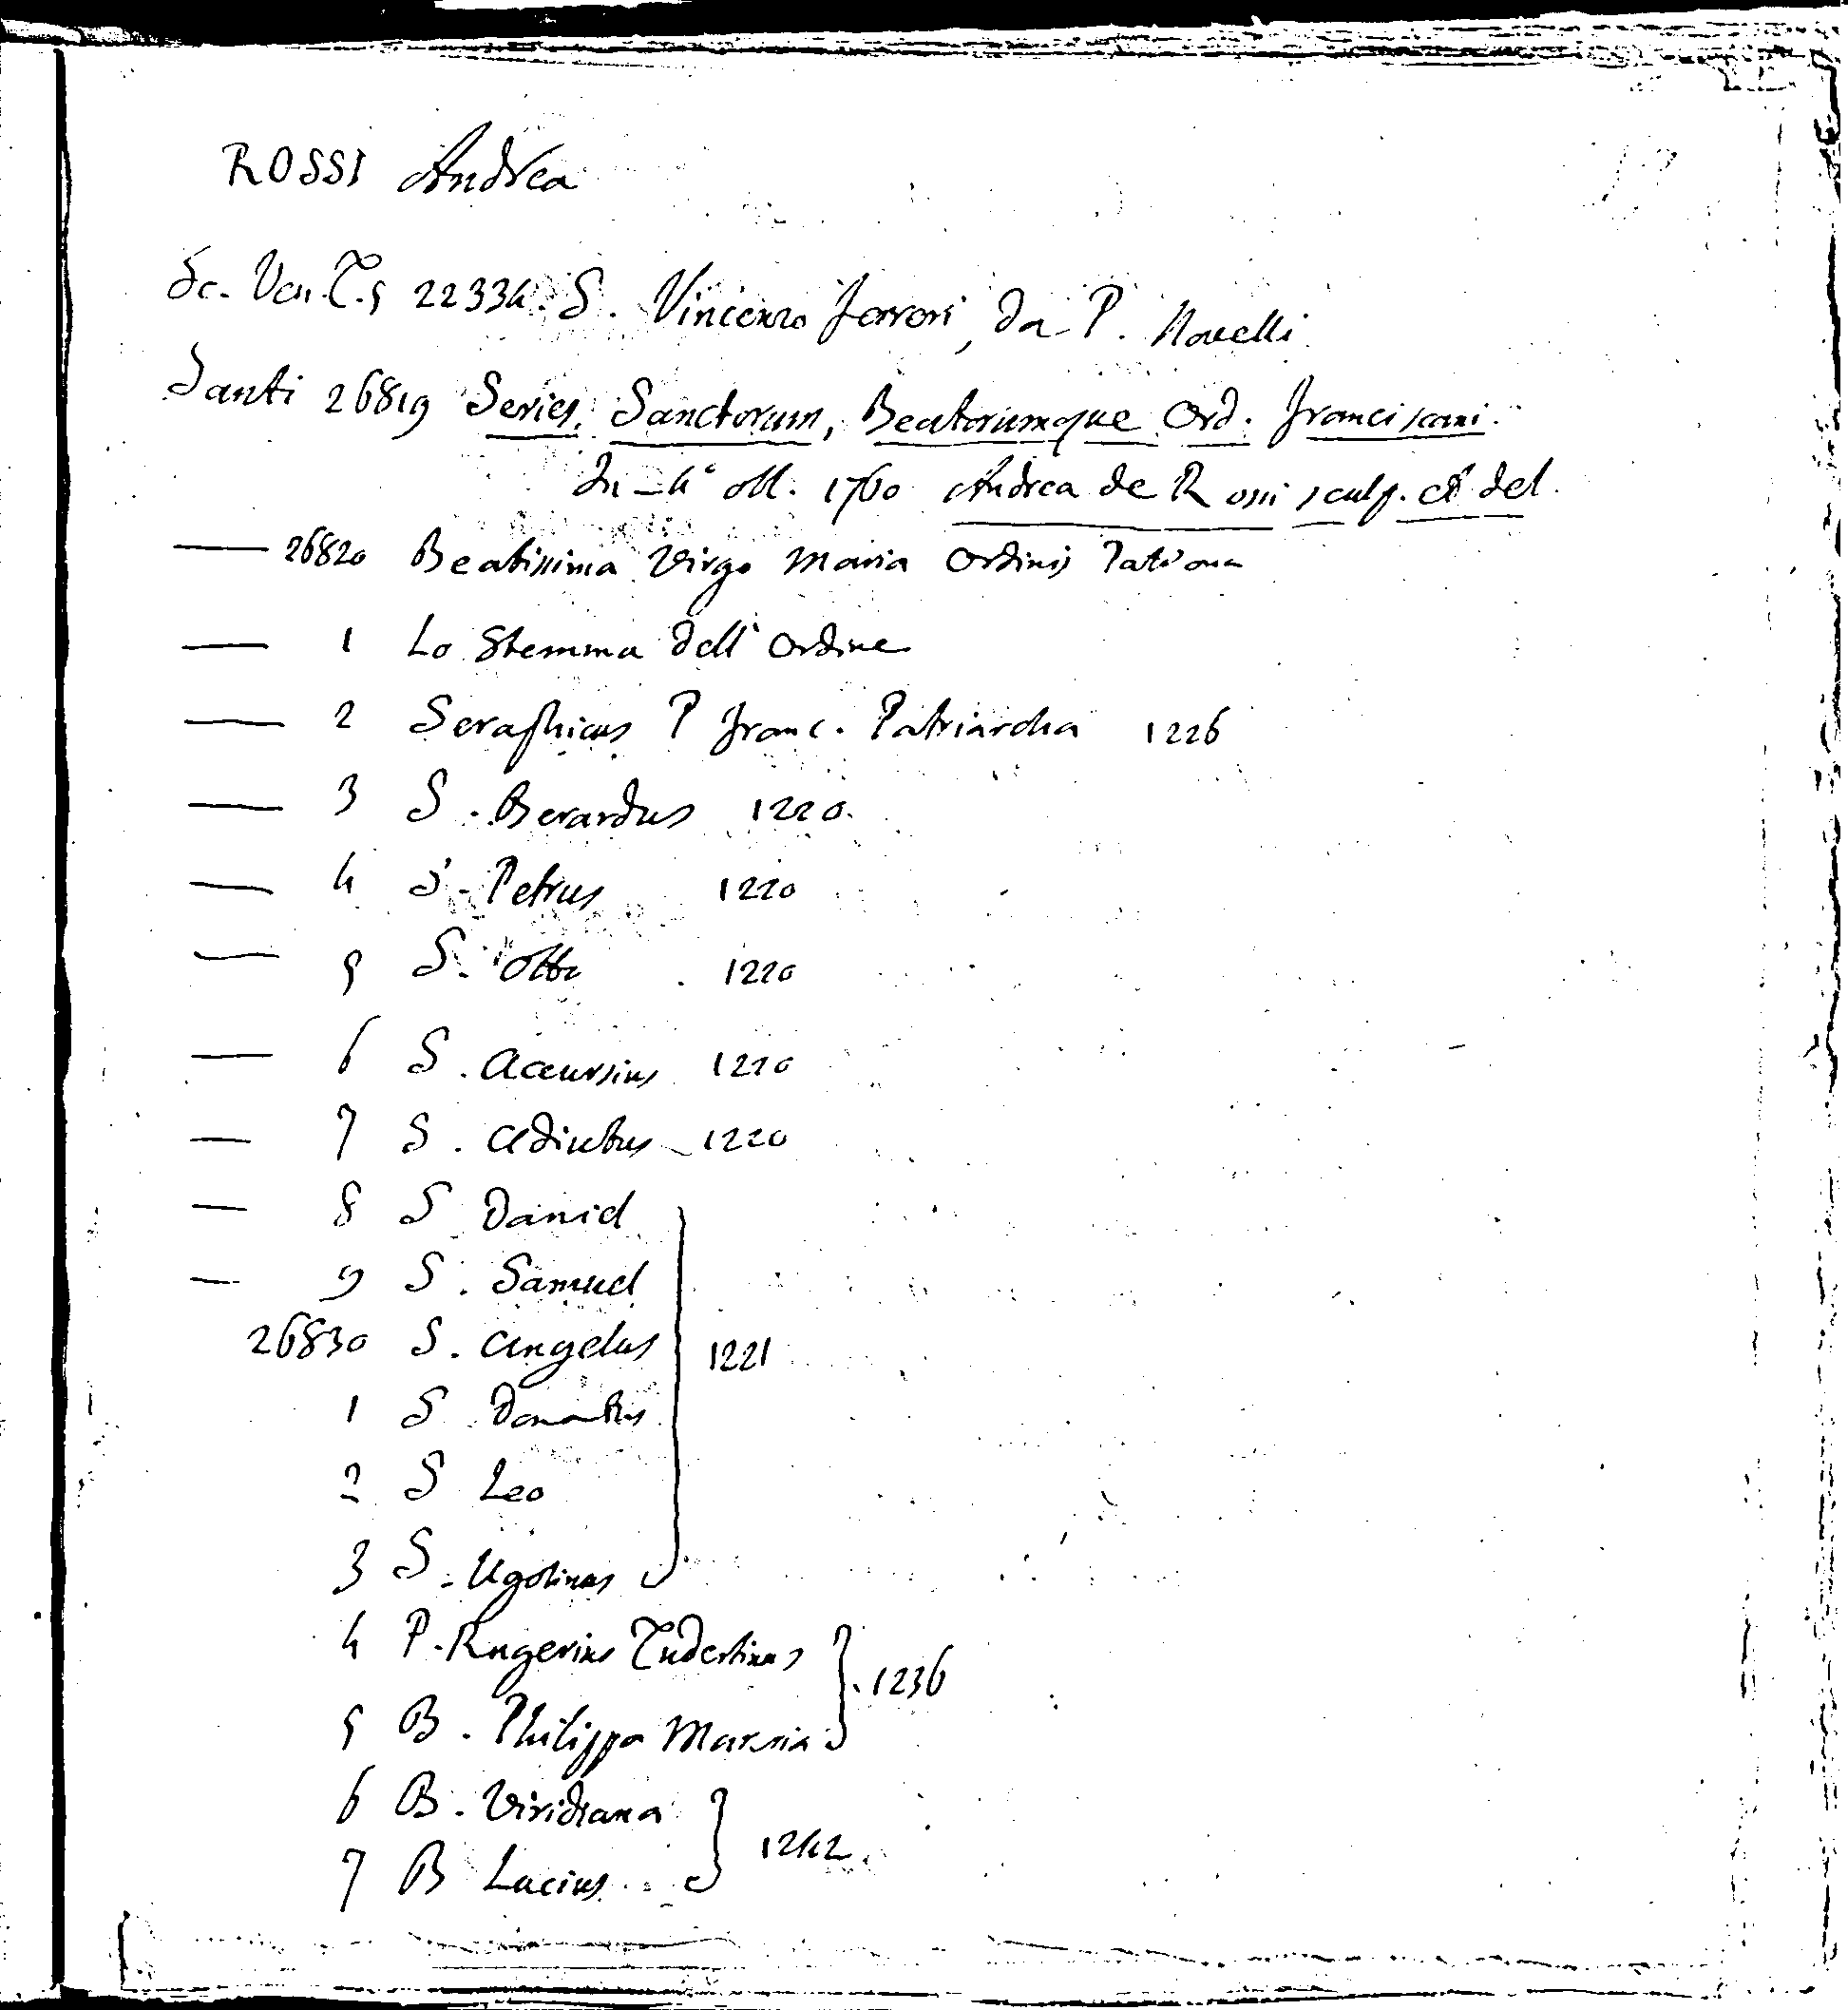 ROSSI Andrea
Sc. Ven. T. 5 22334. S. Vincenzo Ferreri, da P. Novelli
Santi 26819 Series, Sanctorum, Beatorumque Ord. Franciscani.
In-4° ott. 1760 Andrea de Rossi sculp. et del.
— 26820 Beatissima Virgo Maria Ordinis Patrona
— 1 Lo Stemma dell' Ordine
— 2 Seraphicus P Franc. Patriarcha 1226
— 3 S. Berardus 1220.
— 4 S. Petrus 1220
— 5 S. Otto 1220
— 6 S. Acursius 1220
— 7 S. Adiutus 1220
— 8 S Daniel
— 9 S. Samuel
26830 S. Angelus 1221
1 S Donatus
2 S Leo
3 S. Ugolinus
4 P. Rugerius Tudertinus
5 B. Philippa Mareria 1236
6 B. Viridiana
7 B Lucius 1242